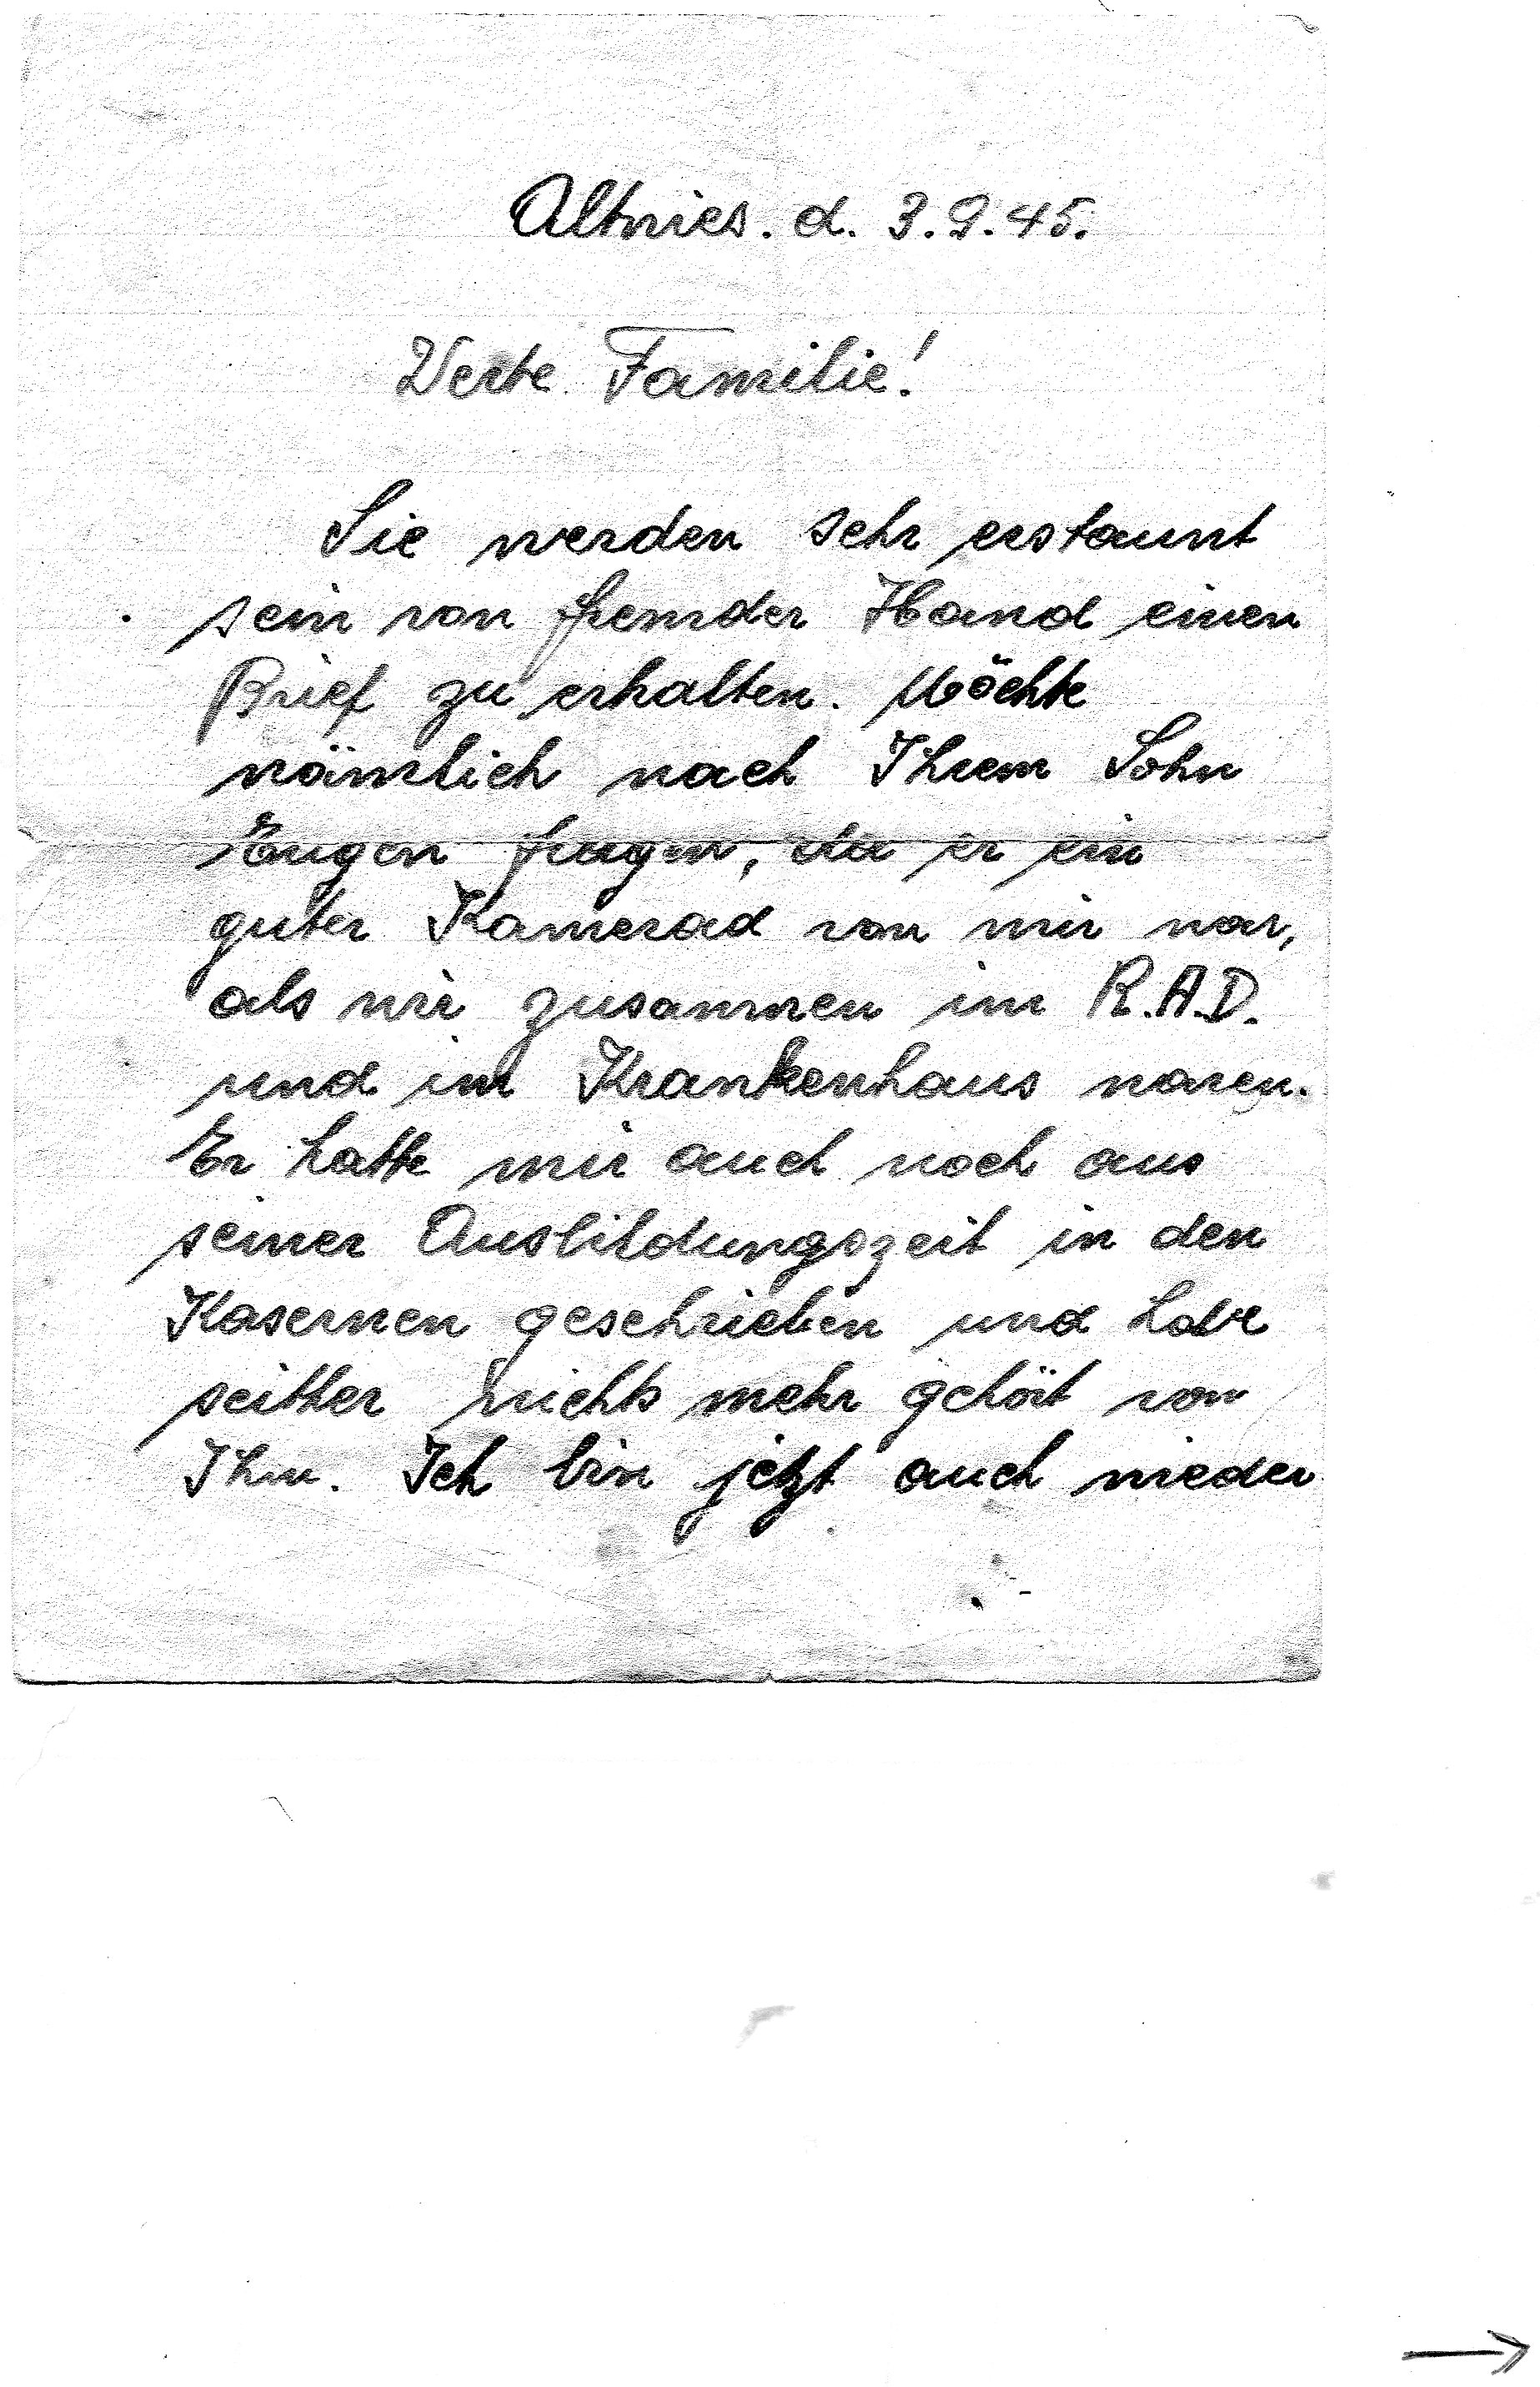 Altnies. d. 3.9.45.
Werte Familie!
Sie werden sehr erstaunt
sein von fremder Hand einen
Brief zu erhalten. Möchte
nämlich nach Ihrem Sohn
Eugen fragen, da er ein
guter Kamerad von mir war,
als wir zusammen im R.A.D.
und im Krankenhaus waren.
Er hatte mir auch noch aus
seiner Ausbildungszeit in den
Kasernen geschrieben und habe
seither nichts mehr gehört von
Ihm. Ich bin jetzt auch wieder
→